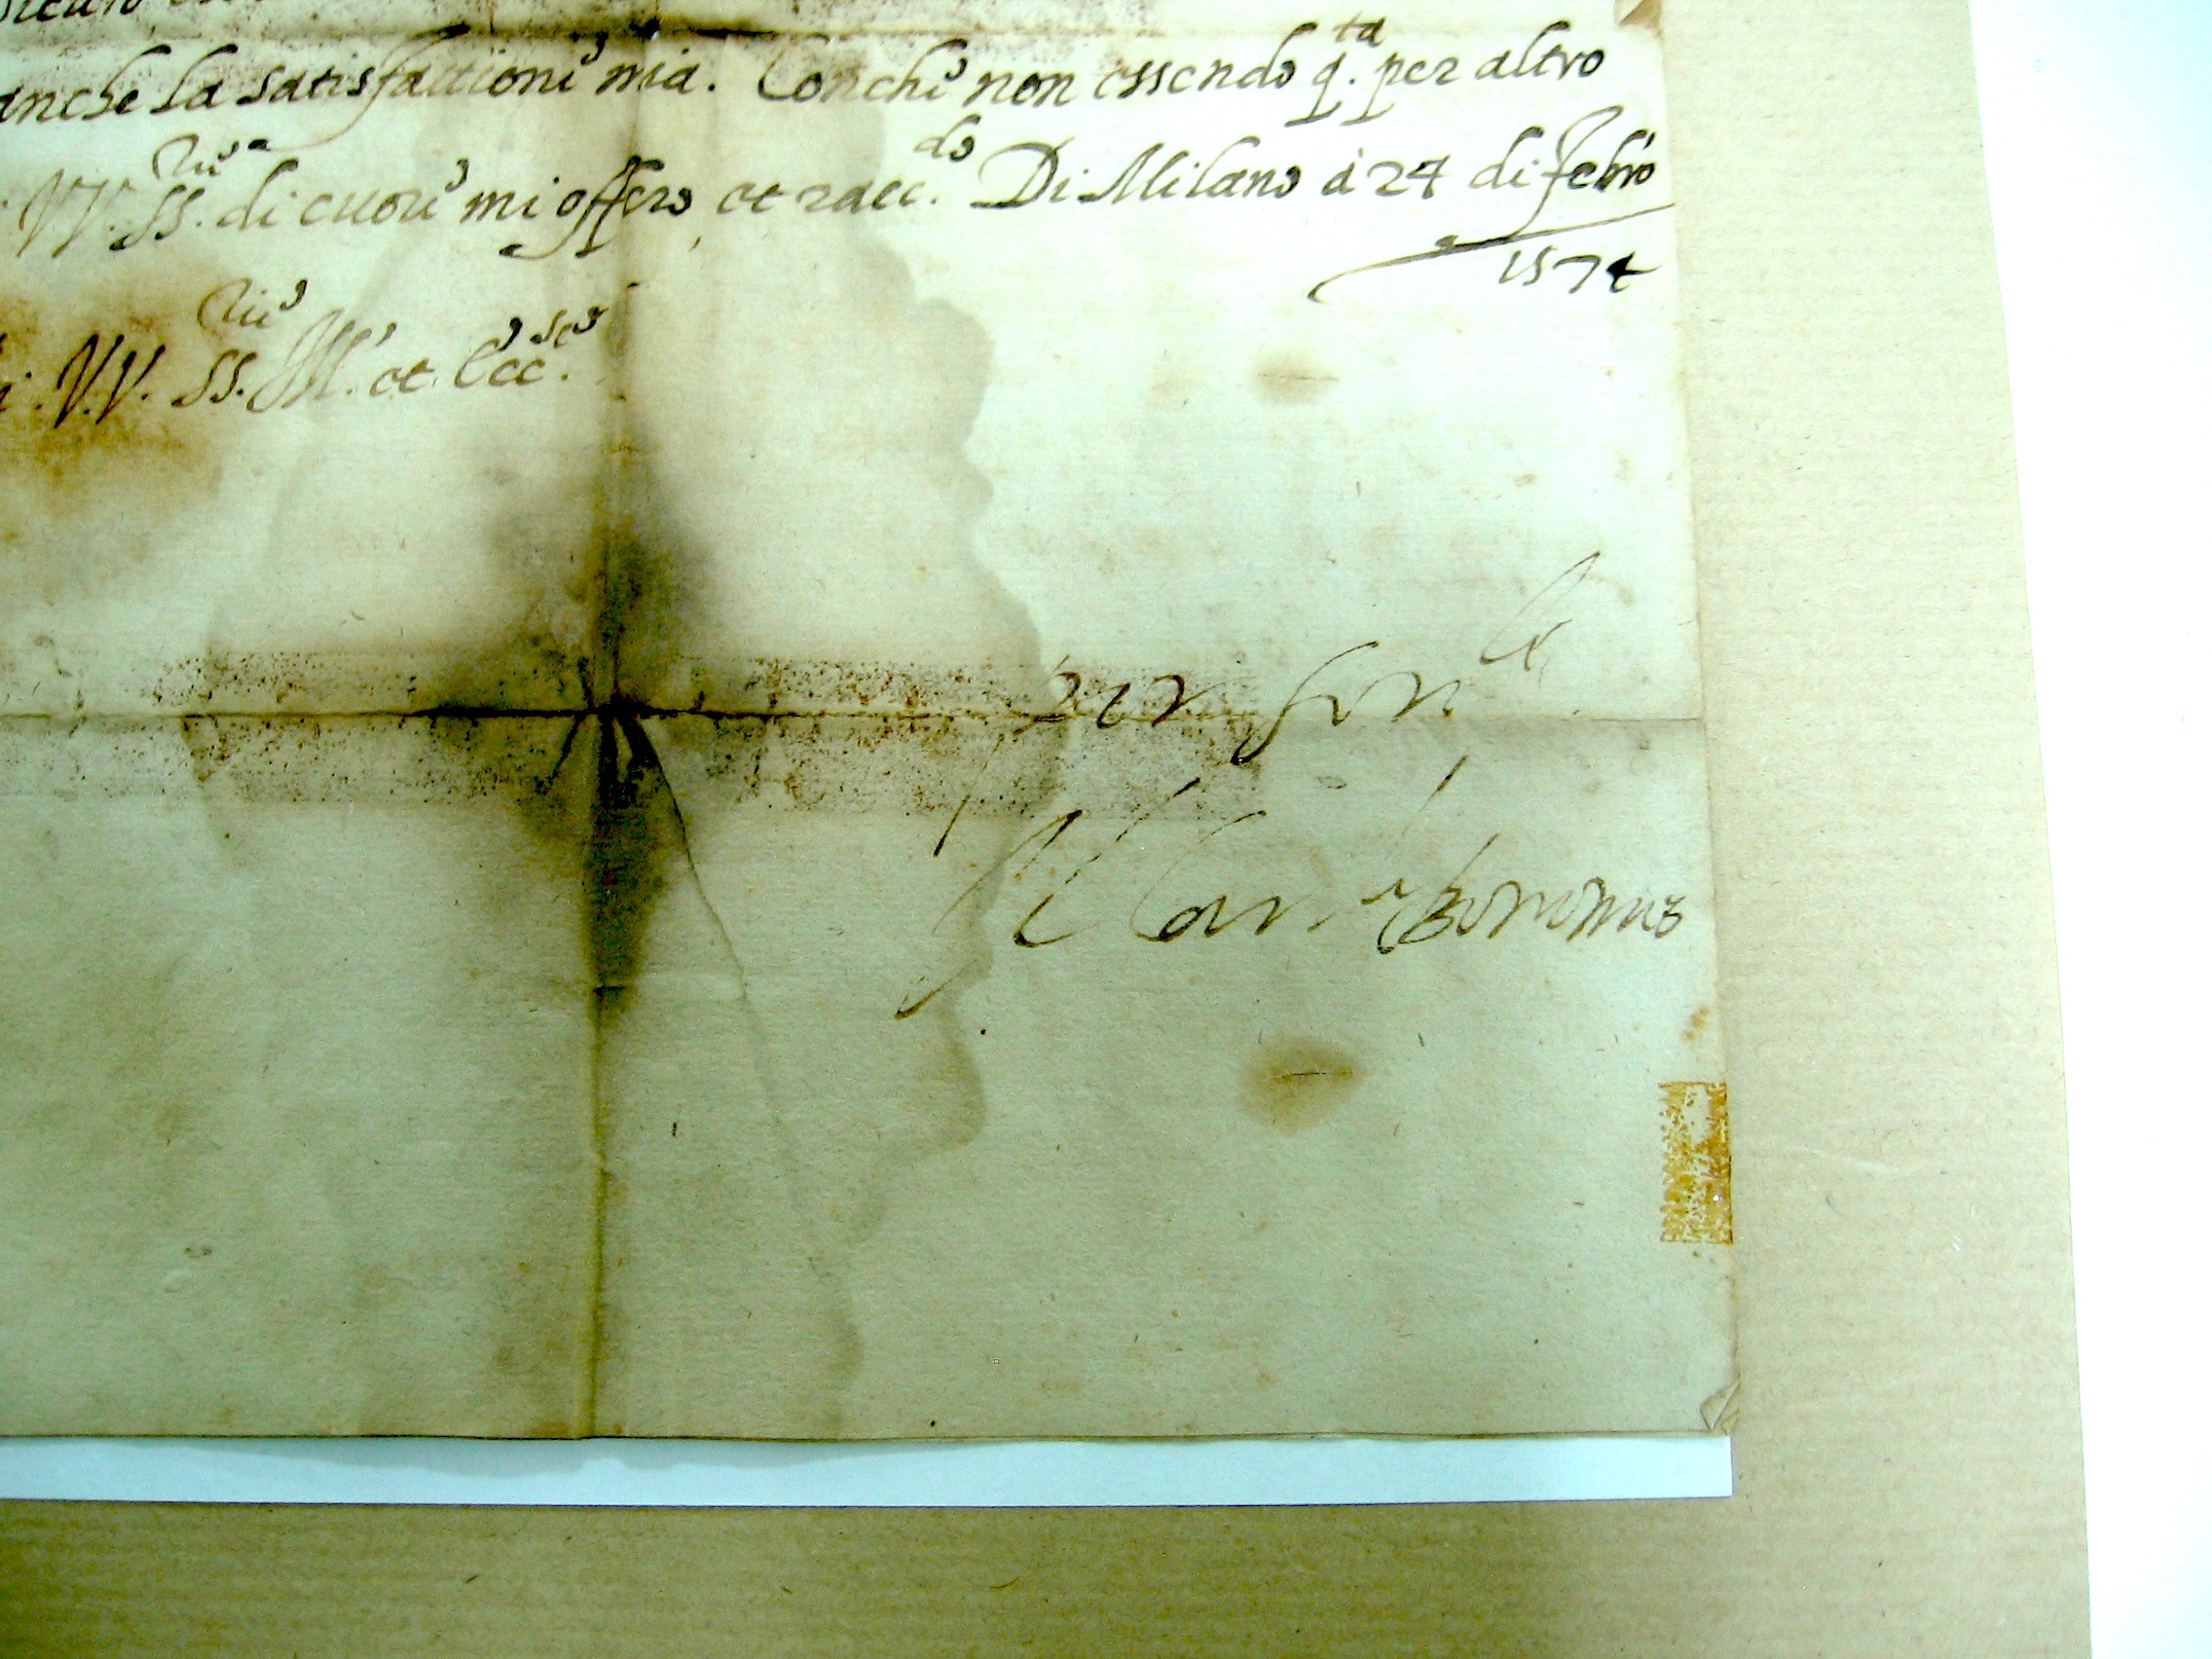 anche la satisfattione mia. Conche non essendo q.ta per altro
VV. SS.rie di cuore mi offero, et racc.do Di Milano à 24 di Febro
1574
VV. SS.rie M. et Ecc.
per ser.
Il Car.le Borromeo